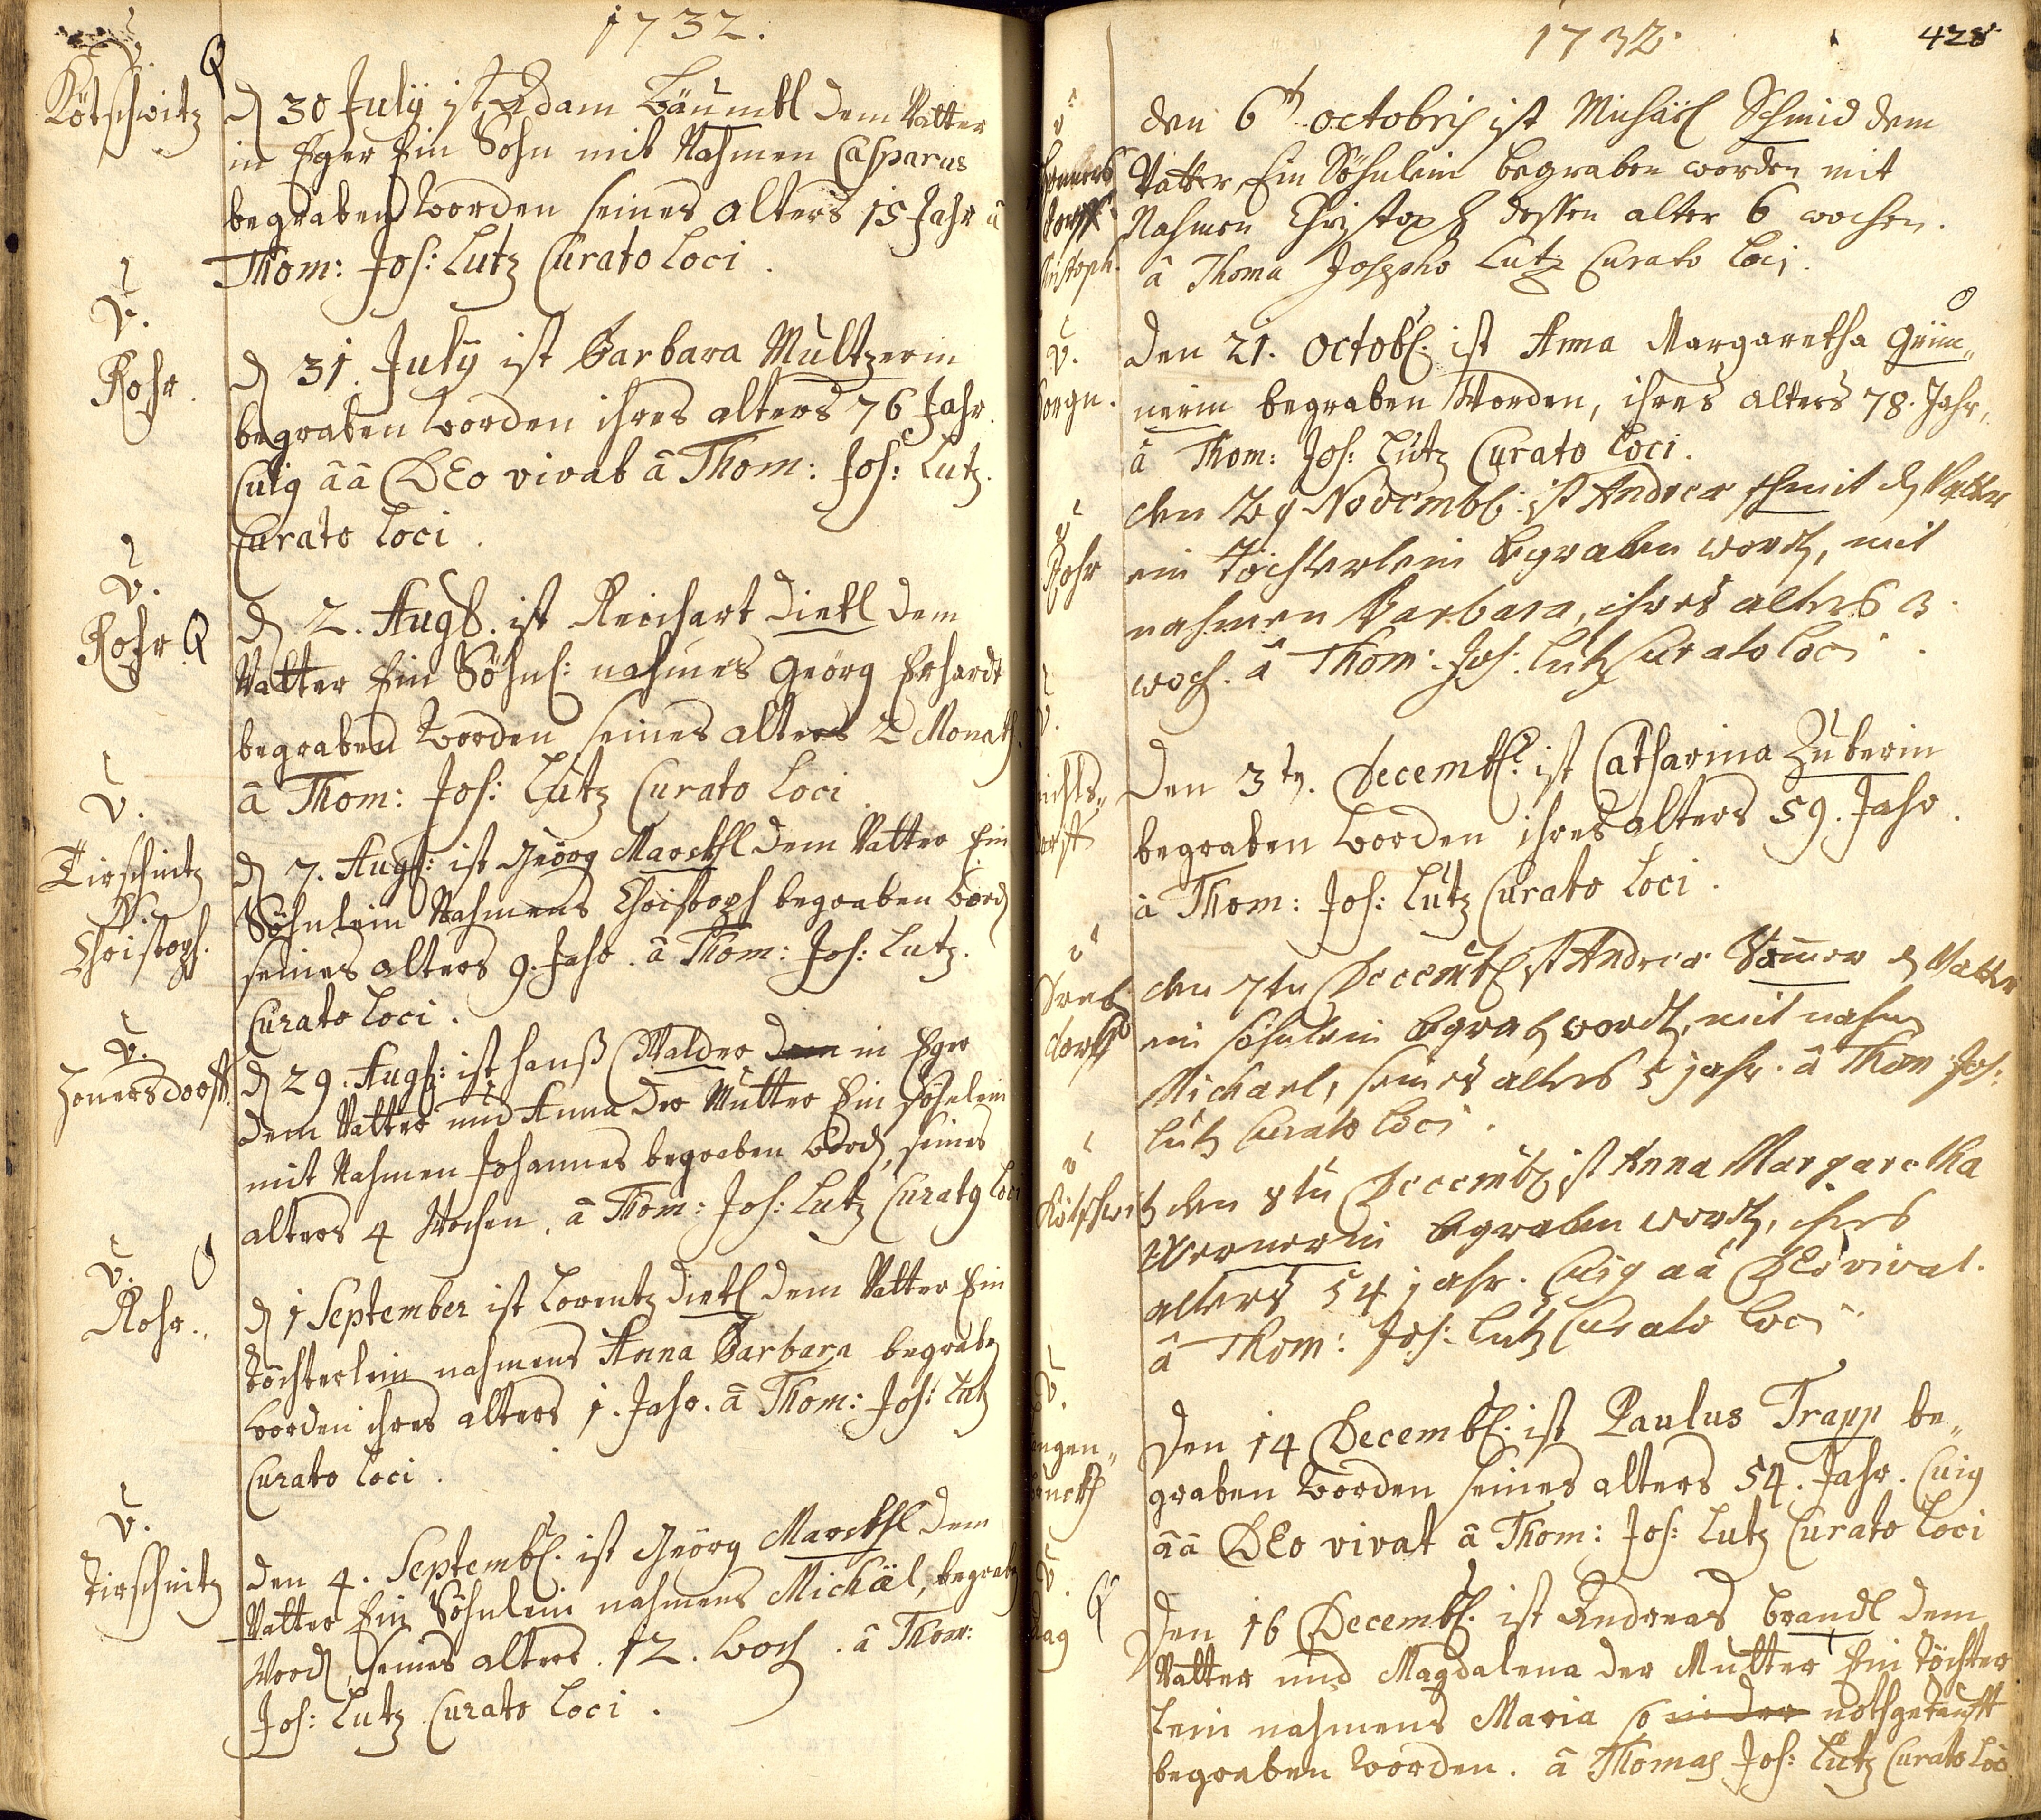 1732.
V.
Kötschwitz
Q
d 30 Julÿ ist Adam Bäumbl dem Vatter
in Eger Ein Sohn mit Nahmen Casparus
begraben worden seines alters 15 Jahr â
Thom: Jos: Lutz Curato Loci.
V.
Rohr.
d 31. Julÿ ist Barbara Multzerin
begraben worden ihres alters 76 Jahr.
Cuig ââ DEo vivat â Thom: Jos: Lutz.
Curato Loci.
V.
Rohr. Q
d 2. Augs. ist Reichart Dietl dem
Vatter Ein Söhnl: nahmens Geörg Erhardt
begraben worden seines alters 2 Monath.
â Thom: Jos: Lutz Curato Loci.
V.
Tirschnitz
Christoph.
d 7. Augs: ist Geörg Marckhl dem Vatter Ein
Söhnlein Nahmens Christoph begraben word
seines alters 9. Jahr. â Thom: Jos: Lutz.
Curato Loci.
V.
Honersdorff.
d 29. Augs: ist Hanß Walder dem in Eger
dem Vatter und Anna der Mutter Ein söhnlein
mit Nahmen Johannes begraben word, seines
alters 4 Wochen. â Thom: Jos: Lutz Curato Loci
V.
Rohr.
d 1 September ist Lorentz Dietl dem Vatter Ein
töchterlein nahmens Anna Barbara begrabn
worden ihres alters 1. Jahr. â Thom: Jos: Lutz
Curato Loci.
V.
Tirschnitz
den 4. Septembl. ist Geörg Marckhl dem
Vatter Ein Söhnlein nahmens Michäl, begrabn
Word, seines alters. 12. woch. â Thom:
Jos: Lutz Curato Loci.
1732.
428
den 6t octobris ist Michäel Schmid dem
Vatter, Ein Söhnlein begraben worden mit
Nahmen Christoph dessen alter 6 wochen.
â Thoma Josepho Lutz Curato Loci.
V.
Den 21. Octobl. ist Anna Margaretha Grim„
nerin begraben Worden, ihres alters 78. Jahr,
â Thom: Jos: Lutz Curato Loci.
V
Rohr
den 29 Novembl: ist Andreæ schmit d Vatter
ein töchterlein begraben word, mit
nahmen Barbara, ihres alters 3.
woch. â Thom: Jos: Lutz Curato Loci.
V.
Den 3tn. Decembl: ist Catharina Zuberin
begraben worden ihres alters 59. Jahr.
â Thom: Jos: Lutz Curato Loci.
V
dorff
den 7tn Decembl ist Andreæ Sommer d Vatter
ein söhnlein begrab word, mit nahm
Michael, seines alters 5 jahr. â Thom Jos:
Lutz Curato Loci.
V
Kötschwitz
den 8tn Decembl ist Anna Margaretha
Wernerin begraben word, ihres
alters 54 jahr. Cuig ââ DEo vivat.
â Thom: Jos: Lutz Curato Loci
V.
Den 14 Decembl. ist Paulus Trapp be„
graben worden seines alters 54. Jahr. Cuig
ââ DEo vivat â Thom: Jos: Lutz Curato Loci
V. Q
Den 16 Decembl. ist Andreas Brandl dem
Vatter und Magdalena der Mutter Ein Töchter
lein nahmens Maria so in der nothgetaufft
begraben worden. â Thomas Jos: Lutz Curato Loci